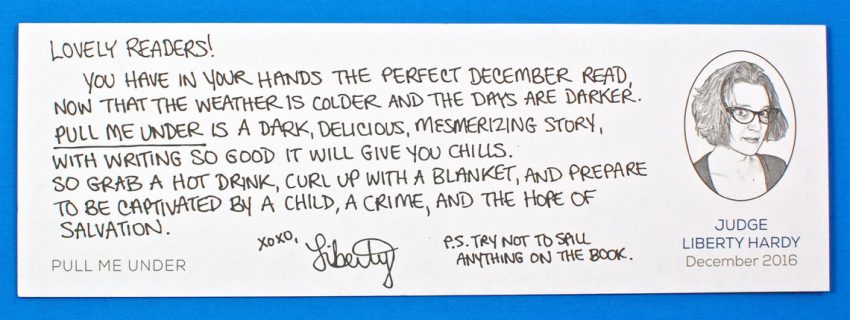 LOVELY READERS!
YOU HAVE IN YOUR HANDS THE PERFECT DECEMBER READ,
NOW THAT THE WEATHER IS COLDER AND THE DAYS ARE DARKER.
PULL ME UNDER IS A DARK, DELICIOUS, MESMERIZING STORY,
WITH WRITING SO GOOD IT WILL GIVE YOU CHILLS.
SO GRAB A HOT DRINK, CURL UP WITH A BLANKET, AND PREPARE
TO BE CAPTIVATED BY A CHILD, A CRIME, AND THE HOPE OF
SALVATION.
XOXO,
Liberty
P.S. TRY NOT TO SPILL
ANYTHING ON THE BOOK.
PULL ME UNDER
JUDGE
LIBERTY HARDY
December 2016